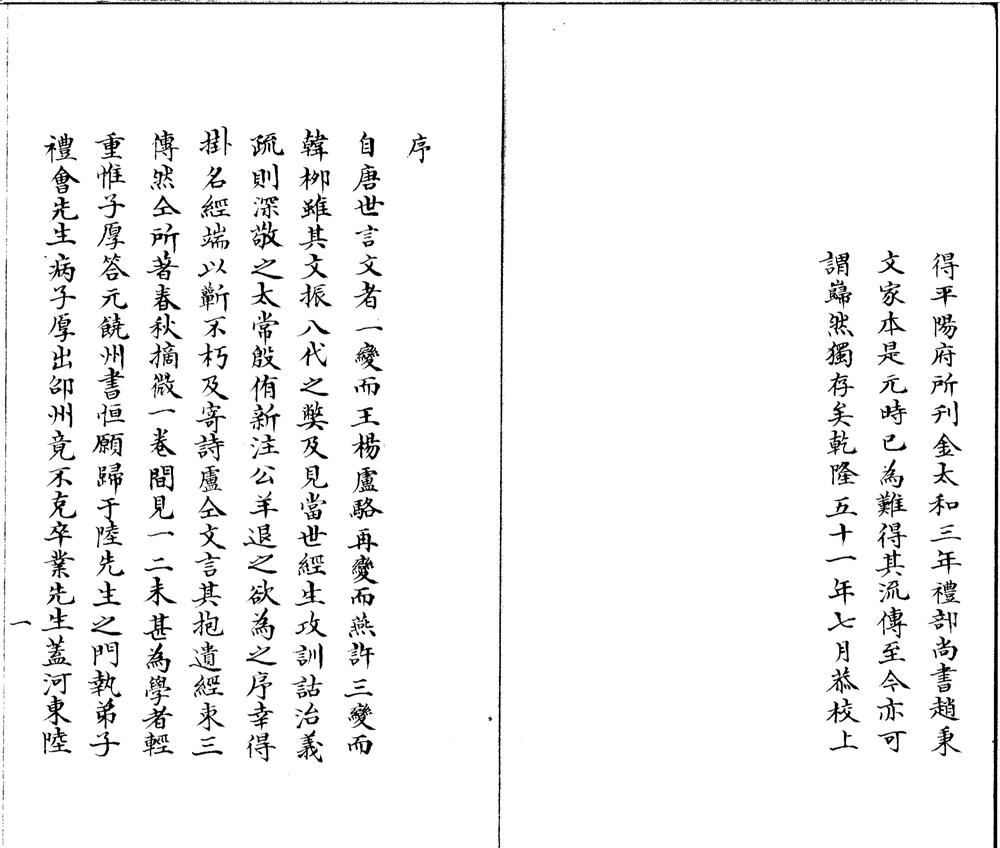 得平陽府所刊金太和三年禮部尚書趙秉
文家本是元時已為難得其流傳至今亦可
謂巋然獨存矣乾隆五十一年七月恭校上
序
自唐世言文者一變而王楊盧駱再變而燕許三變而
韓栁雖其文振八代之獘及見當世經生攻訓詁治義
疏則深敬之太常殷侑新注公羊退之欲為之序幸得
掛名經端以蘄不朽及寄詩盧仝文言其抱遺經束三
傳然仝所著春秋摘微一卷間見一二未甚為學者輕
重惟子厚答元饒州書恒願歸于陸先生之門執弟子
禮會先生病子厚出邵州竟不克卒業先生蓋河東陸
一